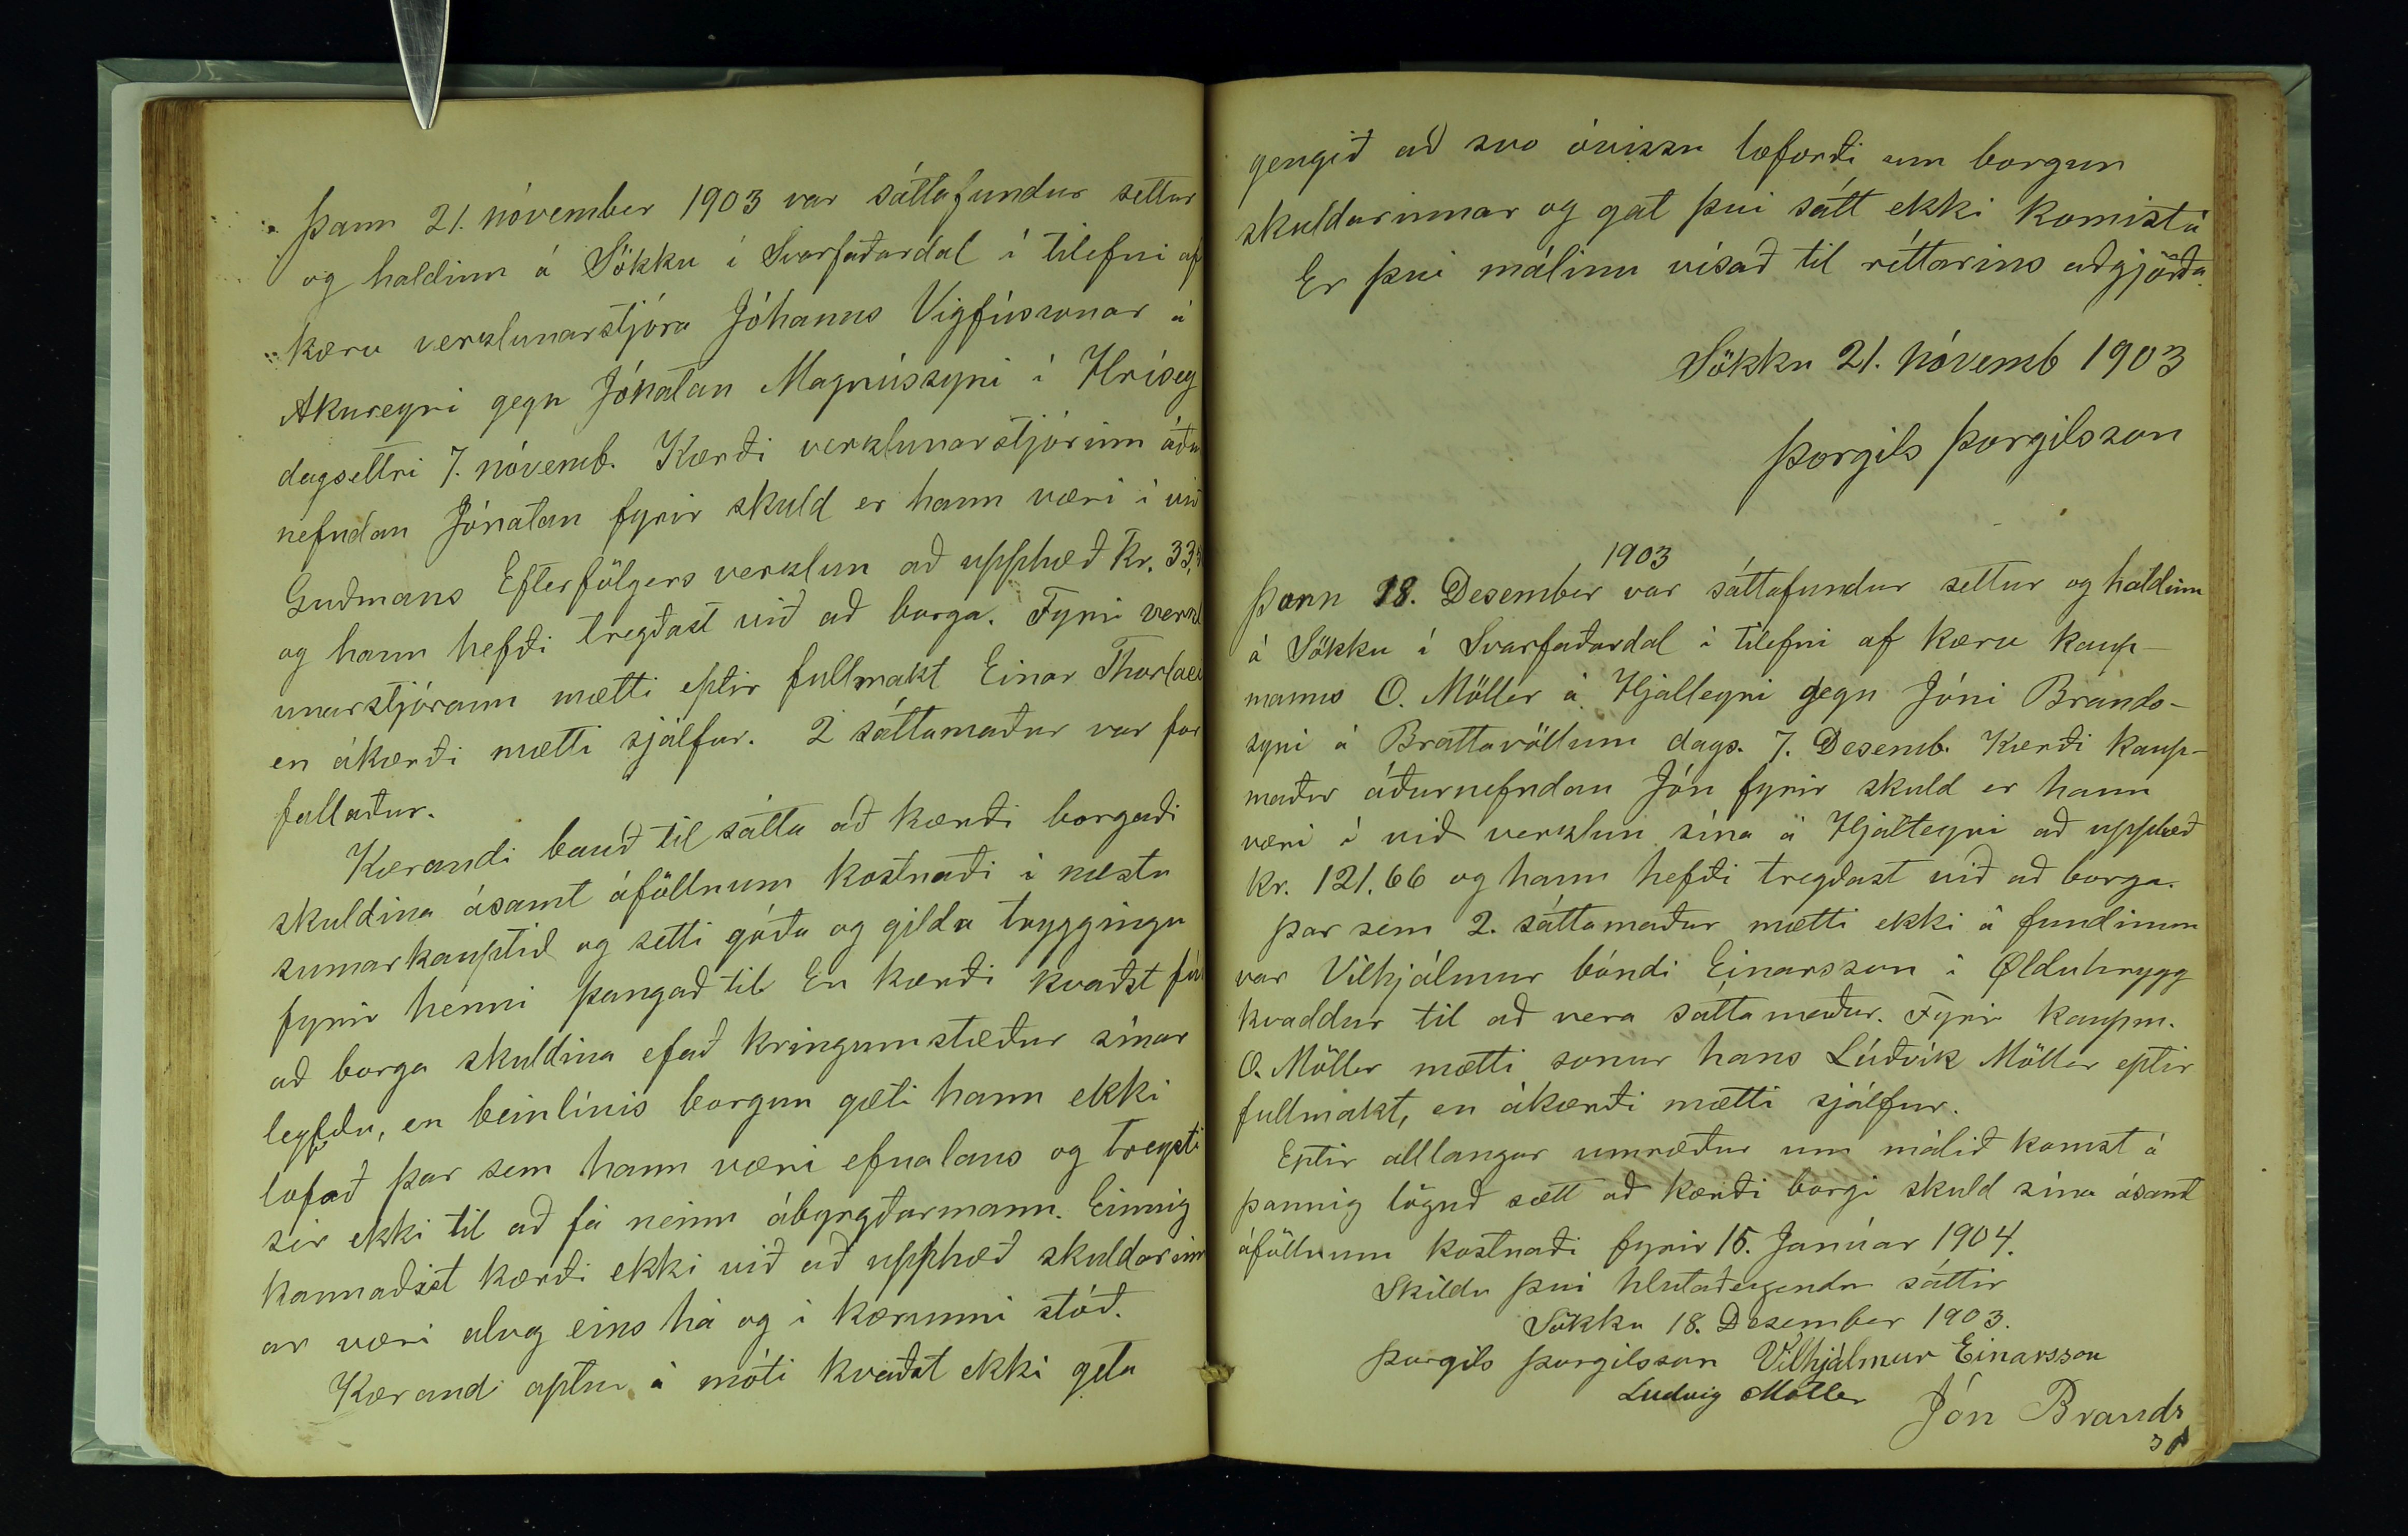 Þann 21. nóvember 1903 var sáttafundur settur
og haldinn á Sökku í Svarfaðardal í tilefni af
kæru verzlunarstjóra Jóhanns Vigfússonar á
Akureyri gegn Jónatan Magnússyni í Hrísey
dagsettri 7. nóvemb. Kærði verzlunarstjórinn áðu
nefndan Jónatan fyrir skuld er hann væri í við
Guðmans Efterfölgers verzlun að upphæð Kr. 33,
og hann hefði tregðast við að borga. Fyrir verzl
unarstjórann mætti eptir fullmakt Einar Thorlac
en ákærði mætti sjálfur. 2 sáttamaður var for
fallaður.
Kærandi bauð til sátta að kærði borgaði
skuldina ásamt áföllnum kostnaði í næstu
sumarkauptíð og setti góða og gilda tryggingu
fyrir henni þangað til. En kærði kvaðst fús
að borga skuldina ef að kringumstæður sínar
leyfðu, en beinlínis borgun gæti hann ekki
lofað þar sem hann væri efnalaus og treysti
sér ekki til að fá neinn ábyrgðarmann. Einnig
kannaðist kærði ekki við að upphæð skuldarinn
ar væri alveg eins há og í kærunni stóð.
Kærandi aptur á móti kvaðst ekki geta
gengið að svo óvissu loforði um borgun
skuldarinnar og gat því sátt ekki komist á
Er því málinu vísað til réttarins aðgjörða.
Sökku 21. nóvemb 1903
Þorgils Þorgilsson
1903
Þann 18. Desember var sáttafundur settur og haldinn
á Sökku í Svarfaðardal í tilefni af kæru kaup-
manns O. Möller á Hjalteyri gegn Jóni Brands-
syni á Brattavöllum dags. 7. Desemb. Kærði kaup-
maður áðurnefndan Jón fyrir skuld er hann
væri í við verzlun sína á Hjalteyri að upphæð
kr. 121,66 og hann hefði tregðast við að borga.
Þar sem 2. sáttamaður mætti ekki á fundinum
var Vilhjálmur bóndi Einarsson í Ølduhrygg
kvaddur til að vera sáttamaður. Fyrir kaupm.
O. Möller mætti sonur hans Lúðvík Möller eptir
fullmakt, en ákærði mætti sjálfur.
Eptir alllangar umræður um málið komst á
þannig löguð sætt að kærði borgi skuld sína ásamt
áföllnum kostnaði fyrir 15. Janúar 1904.
Skildu því hlutaðeigendur sáttir
Sökku 18. Desember 1903.
Þorgils Þorgilsson Vilhjálmur Einarsson
Ludvig Möller Jón Brands